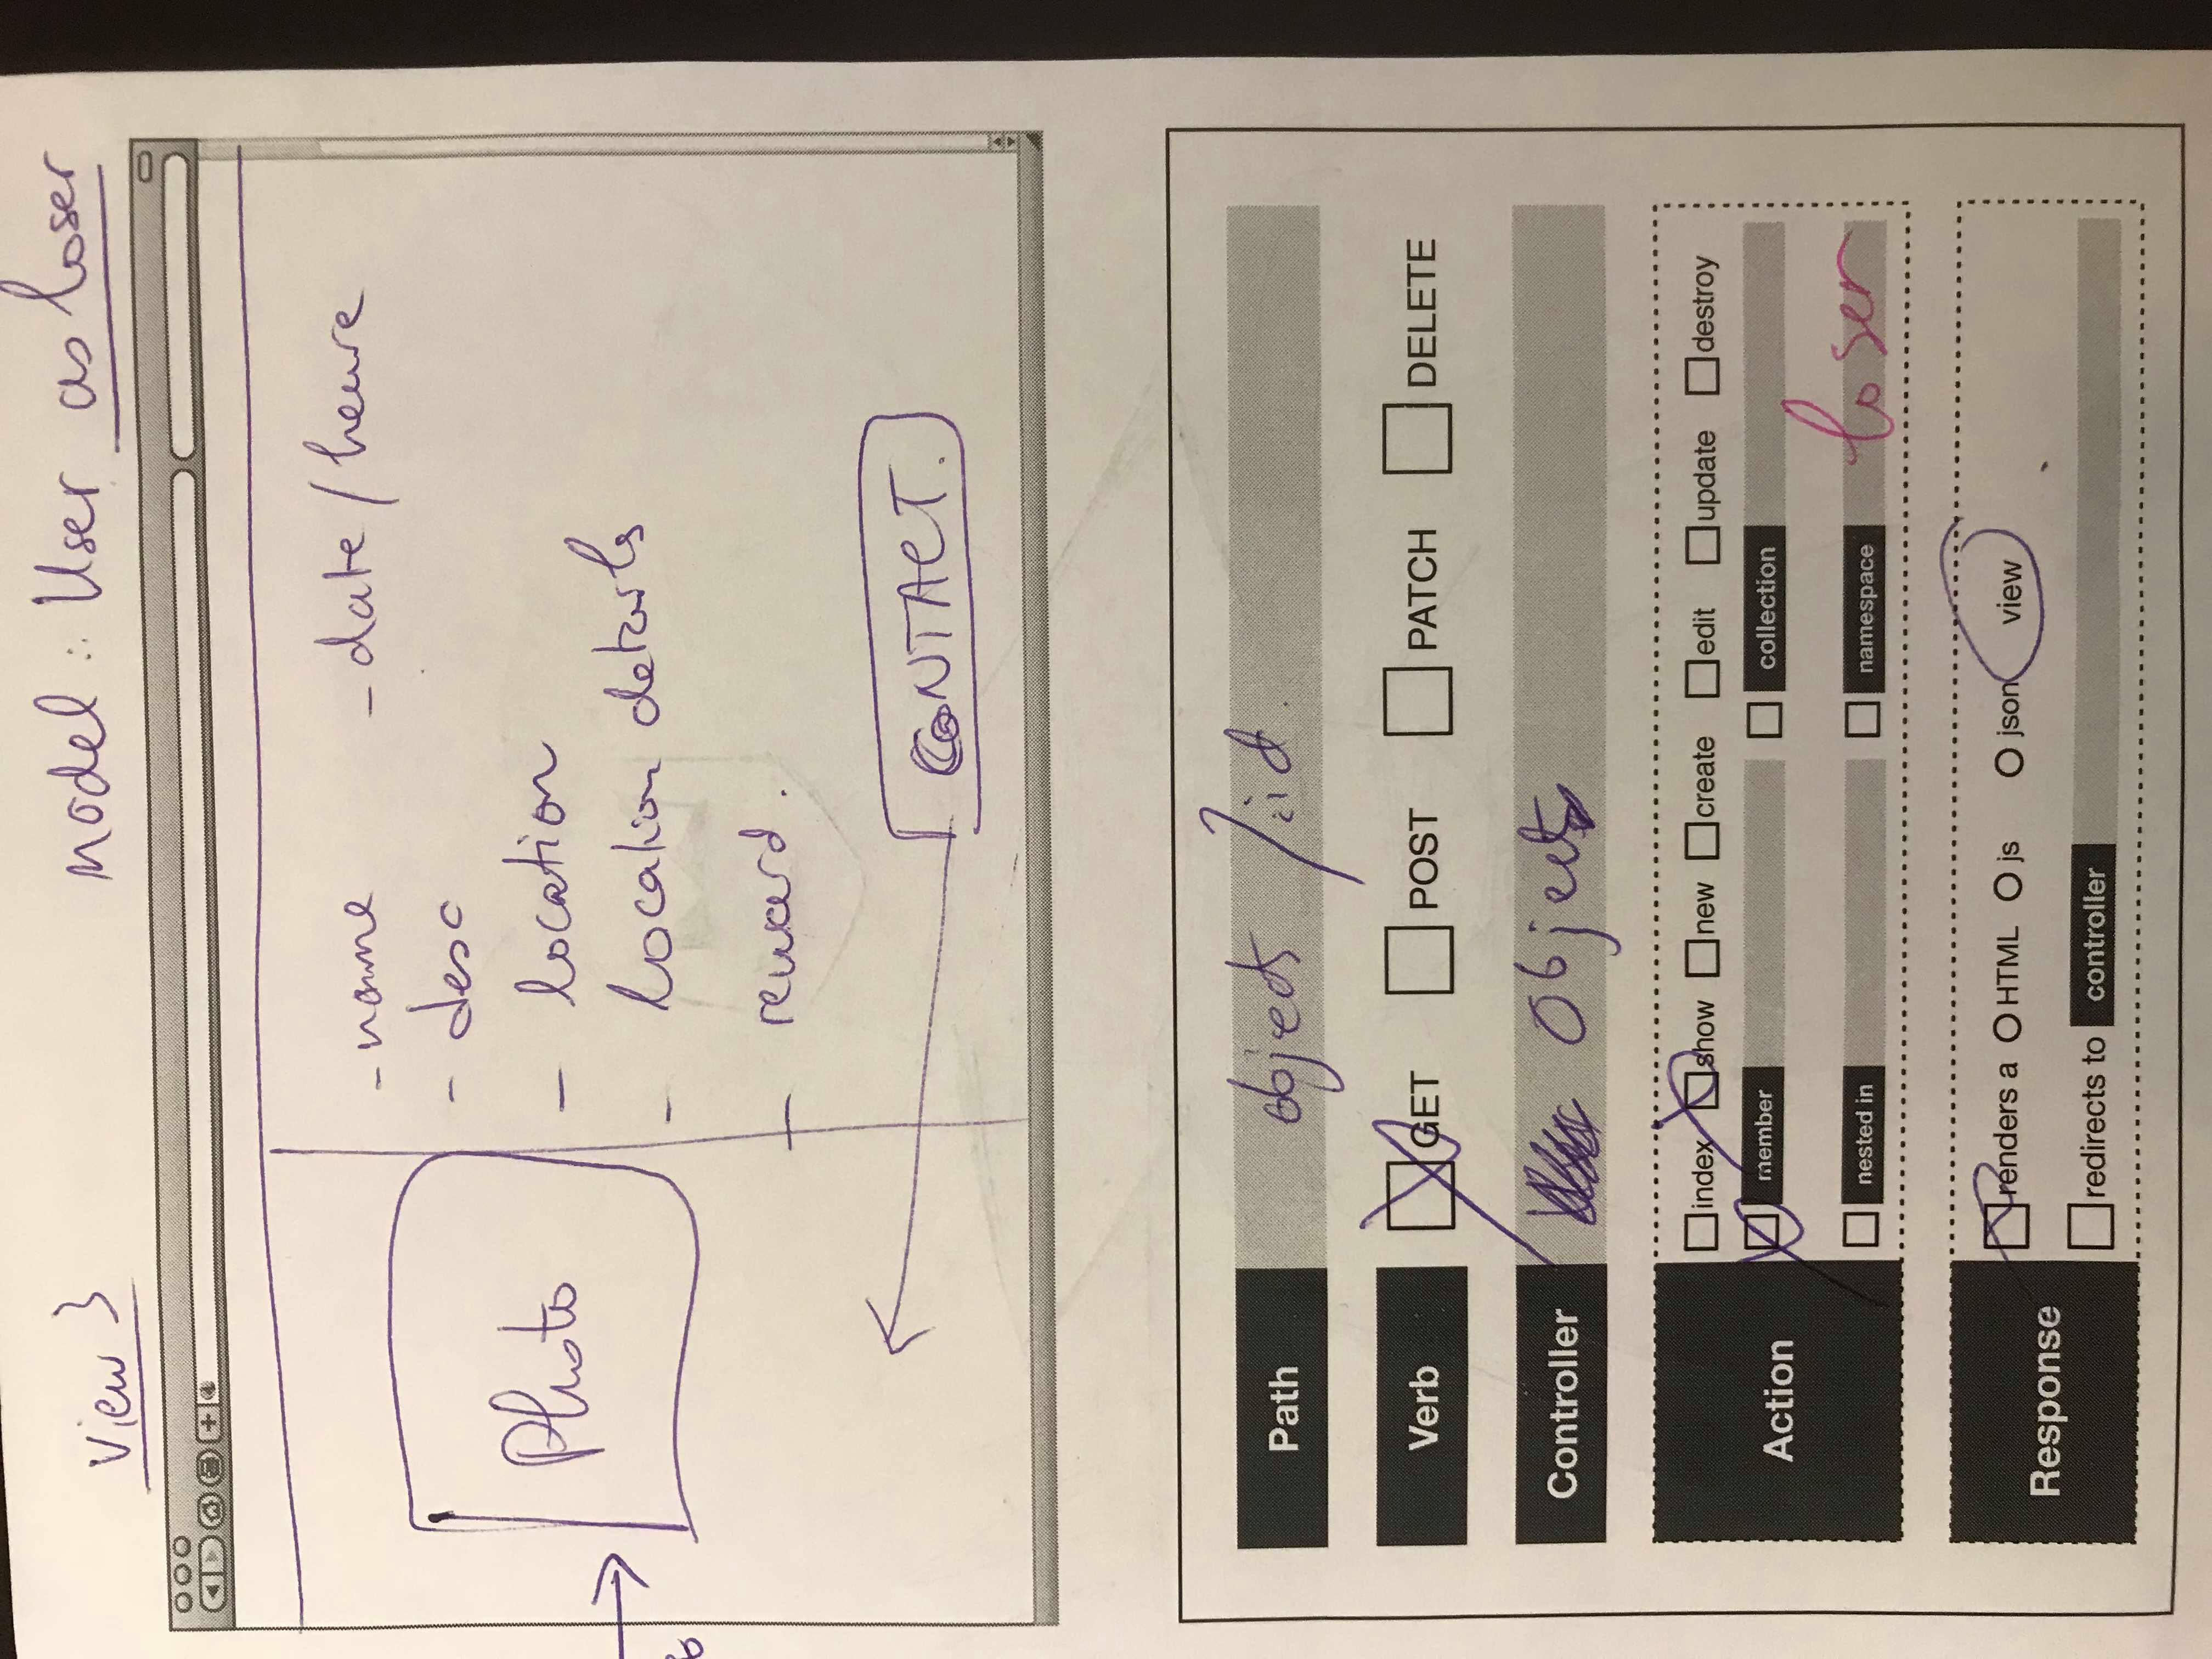 View 3
Model : User as loser
- name
- date / heure
- desc
- location
- location details
- reward.
Photo
CONTACT.
Path
objects /:id
Verb
GET
POST
PATCH
DELETE
Controller
Objects
Action
index
show
new
create
edit
update
destroy
member
collection
nested in
namespace
loser
Response
renders a
HTML
js
json
view
redirects to
controller